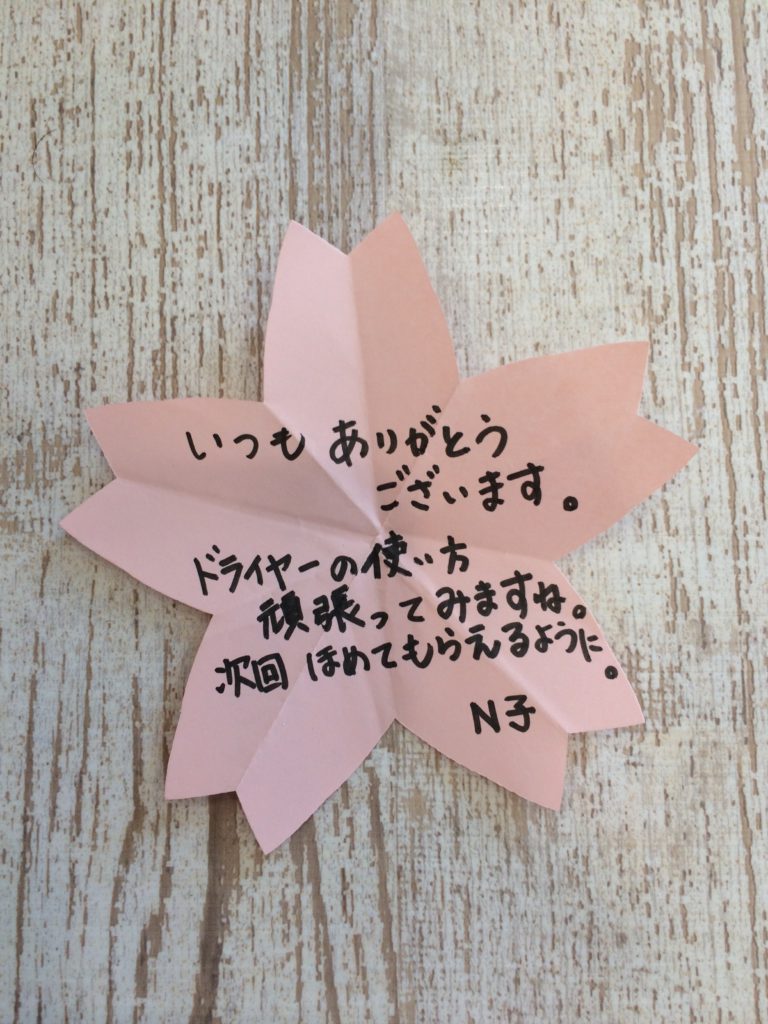 いつも ありがとう
ございます。
ドライヤーの使い方
頑張ってみますね。
次回 ほめてもらえるように。
N子